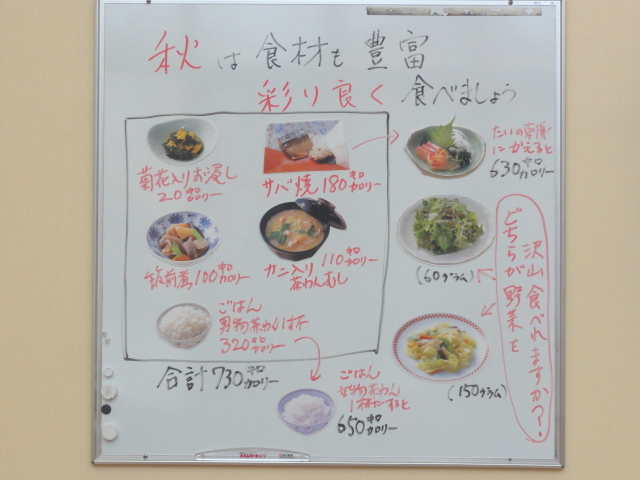 秋は食材も豊富
彩り良く食べましょう
菊花入りお浸し
20キロカロリー
サバ焼180キロカロリー
筑前煮100キロカロリー
カニ入り
茶わんむし
110キロカロリー
ごはん
男物茶わん1杯
320キロカロリー
合計730キロカロリー
にかえると
630キロカロリー
ごはん
女物茶わん
1杯にすると
650キロカロリー
(60グラム)
(150グラム)
どちらが野菜を
沢山食べれますか?